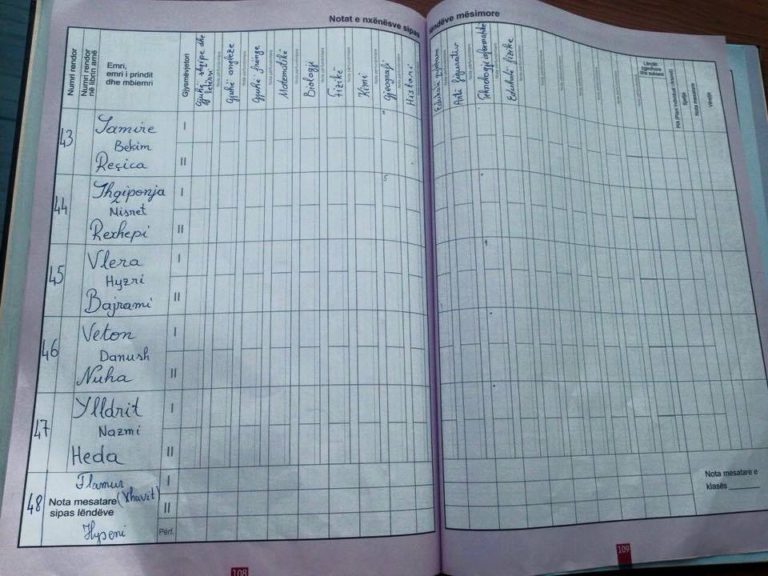 Notat e nxënësve sipas lëndëve mësimore
Numri rendor
Numri rendor në librin amë
Emri, emri i prindit dhe mbiemri
Gjysmëvjetori
Gjuhë shqipe dhe letërsi
Gjuhë angleze
Gjuhë frënge
Matematikë
Biologji
Fizikë
Kimi
Gjeografi
Histori
Edukatë qytetare
Arti figurativ
Teknologji informative
Edukatë fizike
Sjellja
Nota mesatare
Vërejtje
43
Samire
Bekim
Reçica
I
II
44
Shqiponja
Nisret
Rexhepi
I
II
45
Vlera
Hyzri
Bajrami
I
II
46
Veton
Danush
Nuha
I
II
47
Ylldrit
Nazmi
Heda
I
II
48
Flamur
(Xhavit)
Hyseni
Nota mesatare sipas lëndëve
I
II
Përf.
Nota mesatare e
klasës
108
109